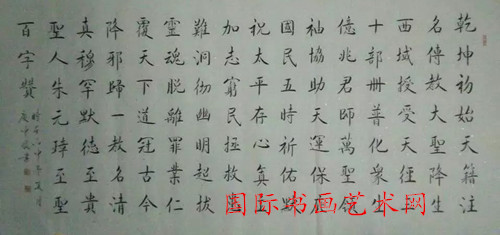 乾坤初始天籍注
名傳教大聖降生
西域授受天經三
十部冊普化衆生
億兆君師萬聖領
袖協助天運保庇
國民五時祈佑默
祝太平存心真主
加志窮民拯救患
難洞彻幽明超拔
靈魂脱離罪業仁
覆天下道冠古今
降邪歸一教名清
真穆罕默德至貴
聖人朱元璋至聖
百字贊
国际书画艺术网